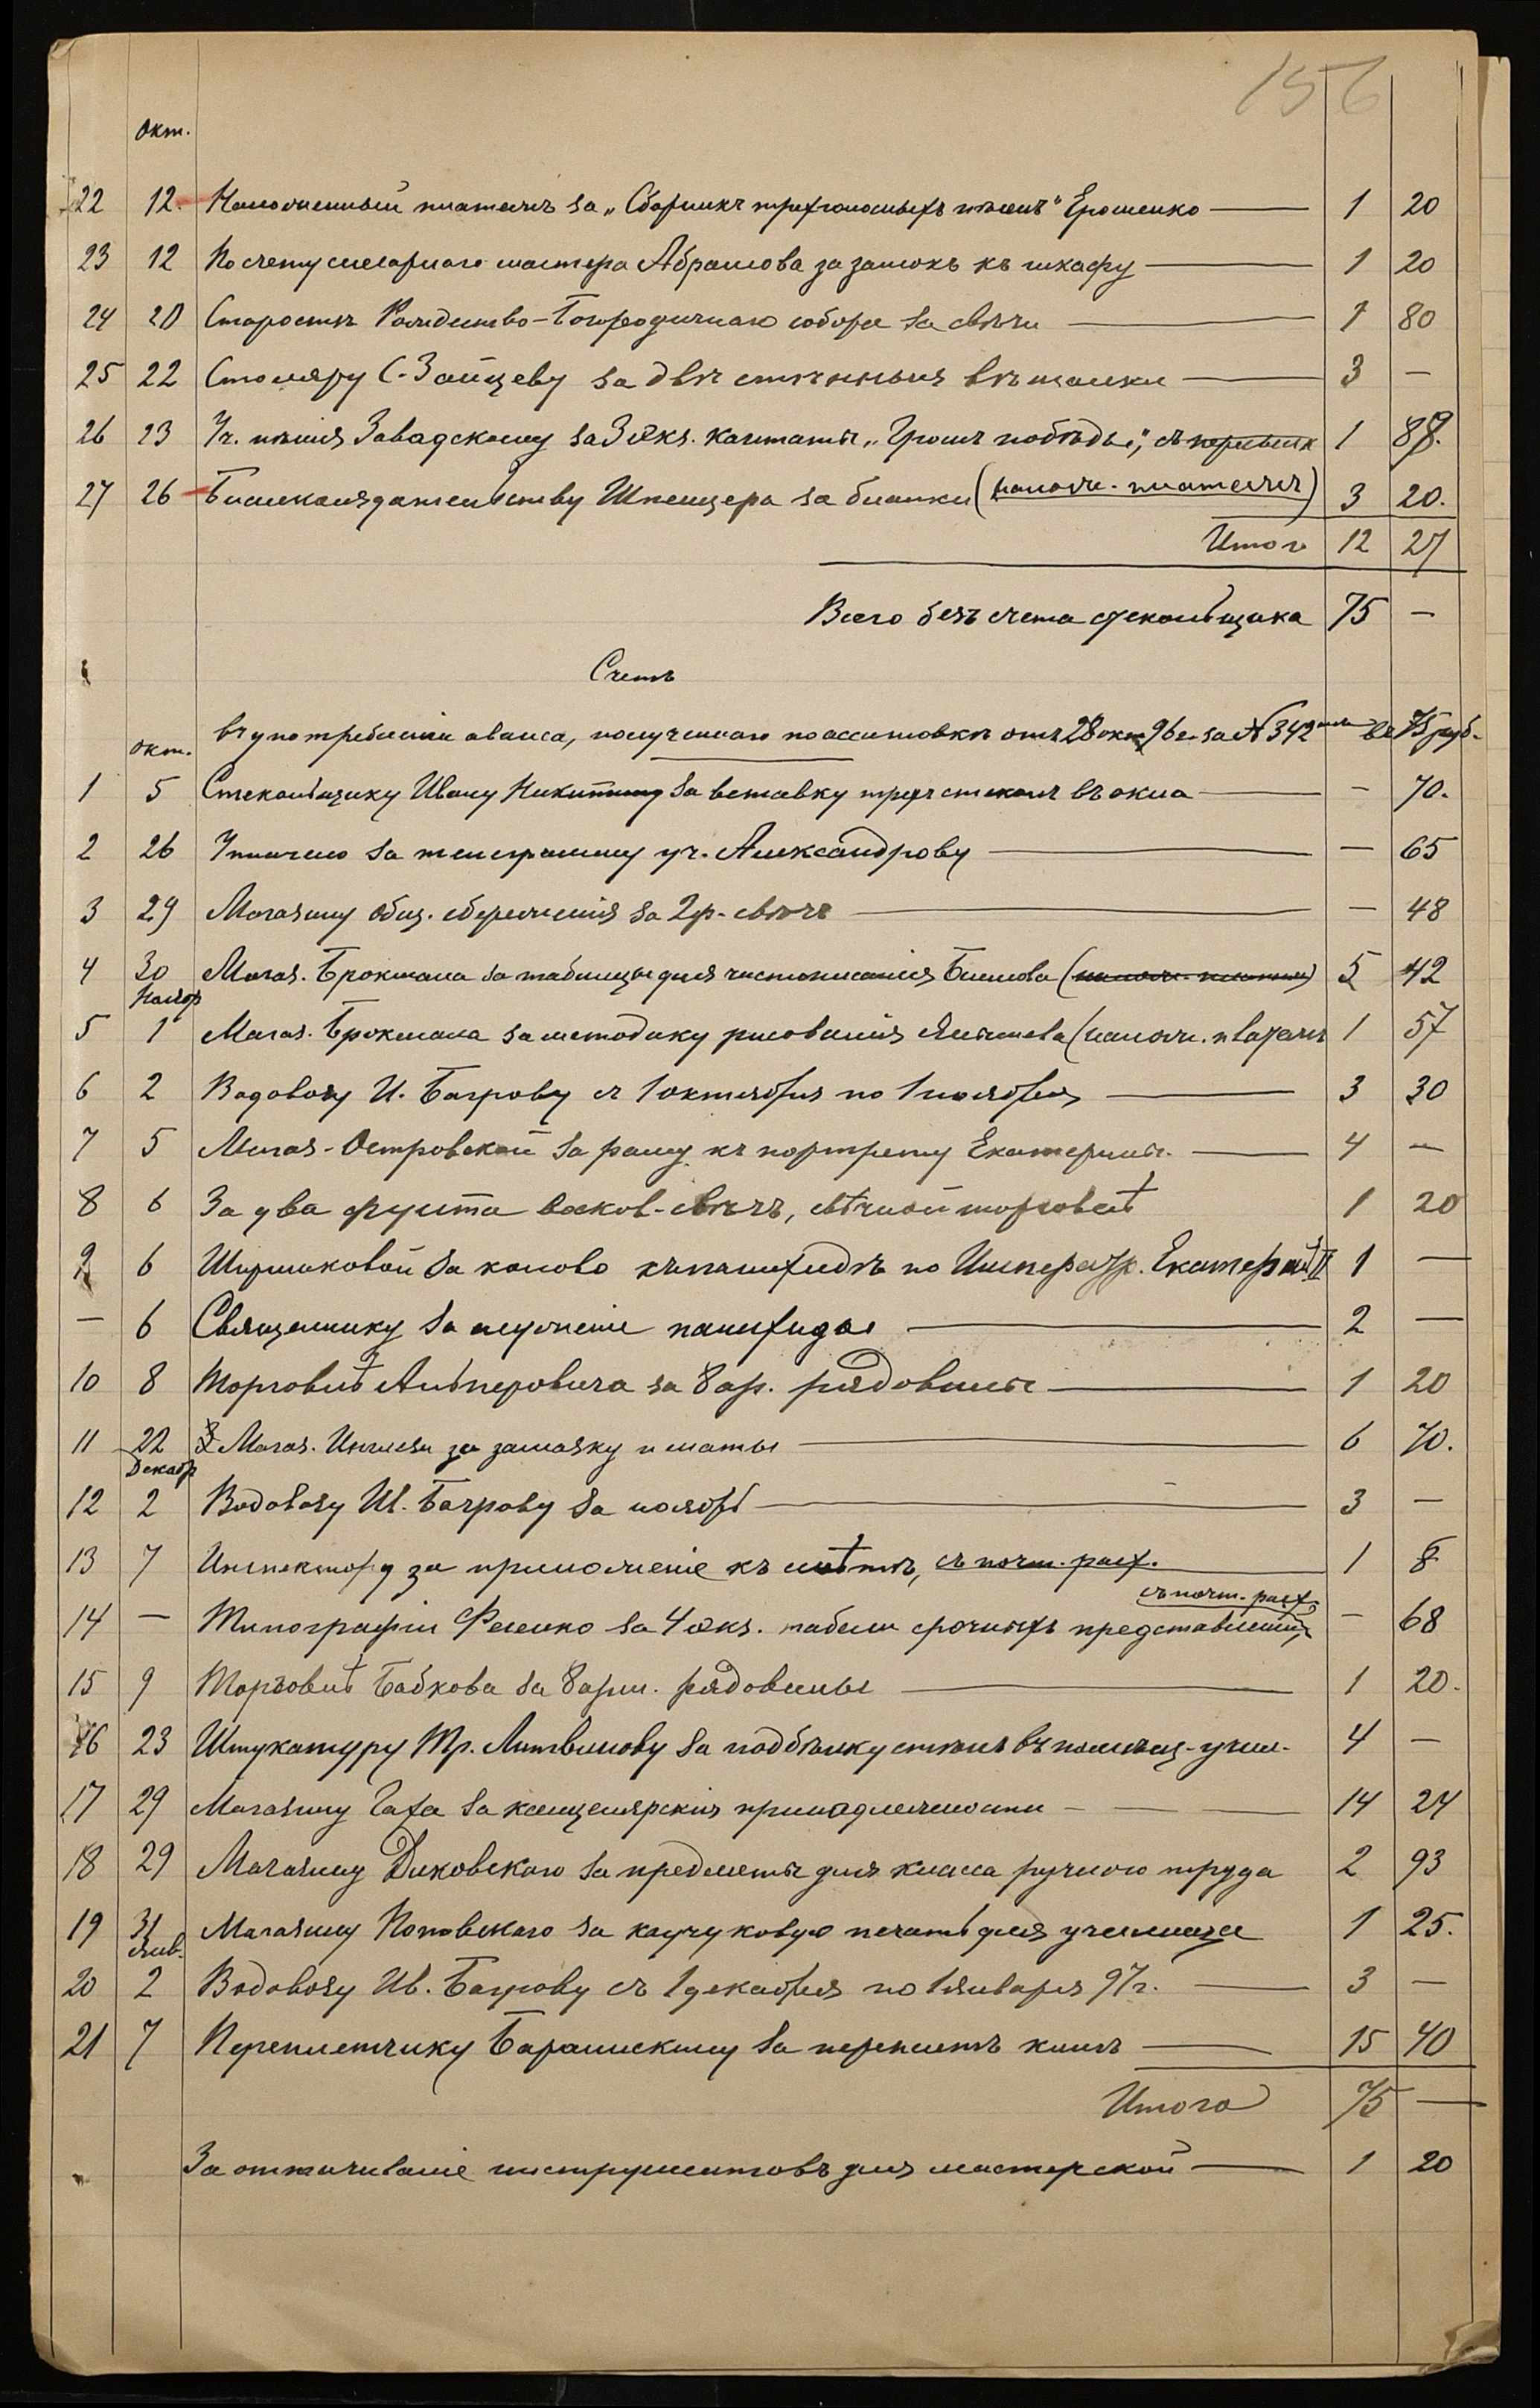 156
Окт.
22 12. Наложенный платежъ за „Сборникъ трехголосныхъ пѣсенъ" Ерошенко — 1 20
23 12 По счету слесарнаго мастера Абрамова за замокъ къ шкафу — 1 20
24 20 Старостѣ Рождество-Богородичнаго собора за свѣчи — 1 80
25 22 Столяру С. Зайцеву за двѣ стѣнныя вѣшалки — 3 —
26 23 Уч. пѣнія Завадскому за 3 экз. кантаты „Громъ побѣды", съ пересылк 1 87.
27 26 Книгоиздательству Шпенцера за бланки (налож. платежъ) 3 20.
Итого 12 27
Всего безъ счета стекольщика 75 —
Счетъ
въ употребленіи аванса, полученнаго по ассигновкѣ отъ 28 окт 96 г. за № 342 75 руб.
окт.
1 5 Стекольщику Ивану Никитину за вставку трехъ стеколъ въ окна — — 70.
2 26 Уплачено за телеграмму уч. Александрову — — 65
3 29 Магазину общ. сбереженія за 2 ф. свѣчъ — — 48
4 30 Магаз. Брокмана за таблицы для чистописанія (налож. платеж) 5 42
Ноябр
5 1 Магаз. Брокмана за методику рисованія (налож. платежъ 1 57
6 2 Водовозу И. Багрову съ 1 октября по 1 ноября — 3 30
7 5 Магаз. Островской за раму къ портрету Екатерины. — 4 —
8 6 За два фунта восков. свѣчъ, свѣчной торговлѣ 1 20
9 6 Ширшиковой за коливо къ панихидѣ по Императр. Екатеринѣ II 1 —
— 6 Священнику за служеніе панихиды — 2 —
10 8 Торговлѣ Альперовича за 8 ар. рядовины — 1 20
11 22 Магаз. за замазку и маты — 6 70.
Декабр
12 2 Водовозу Ив. Багрову за ноябрь — 3 —
13 7 Инспектору за приложеніе къ смѣтѣ, съ почт. расх. — 1 8
съ почт. расх.
14 — Типографіи Фесенко за 4 экз. табели срочныхъ представленій, — 68
15 9 Торговлѣ Бабкова за 8 арш. рядовины — 1 20.
16 23 Штукатуру Тр. Литвинову за подбѣлку стѣнъ въ помѣщ. учил. 4 —
17 29 Магазину Гаха за канцелярскія принадлежности — — — 14 24
18 29 Магазину Диковскаго за предметы для класса ручного труда 2 93
19 31 Магазину Поповскаго за каучуковую печать для училища 1 25.
Янв.
20 2 Водовозу Ив. Багрову съ 1 декабря по 1 января 97 г. — 3 —
21 7 Переплетчику Баранискому за переплетъ книгъ — 15 40
Итого 75 —
За оттачиваніе инструментовъ для мастерской — 1 20